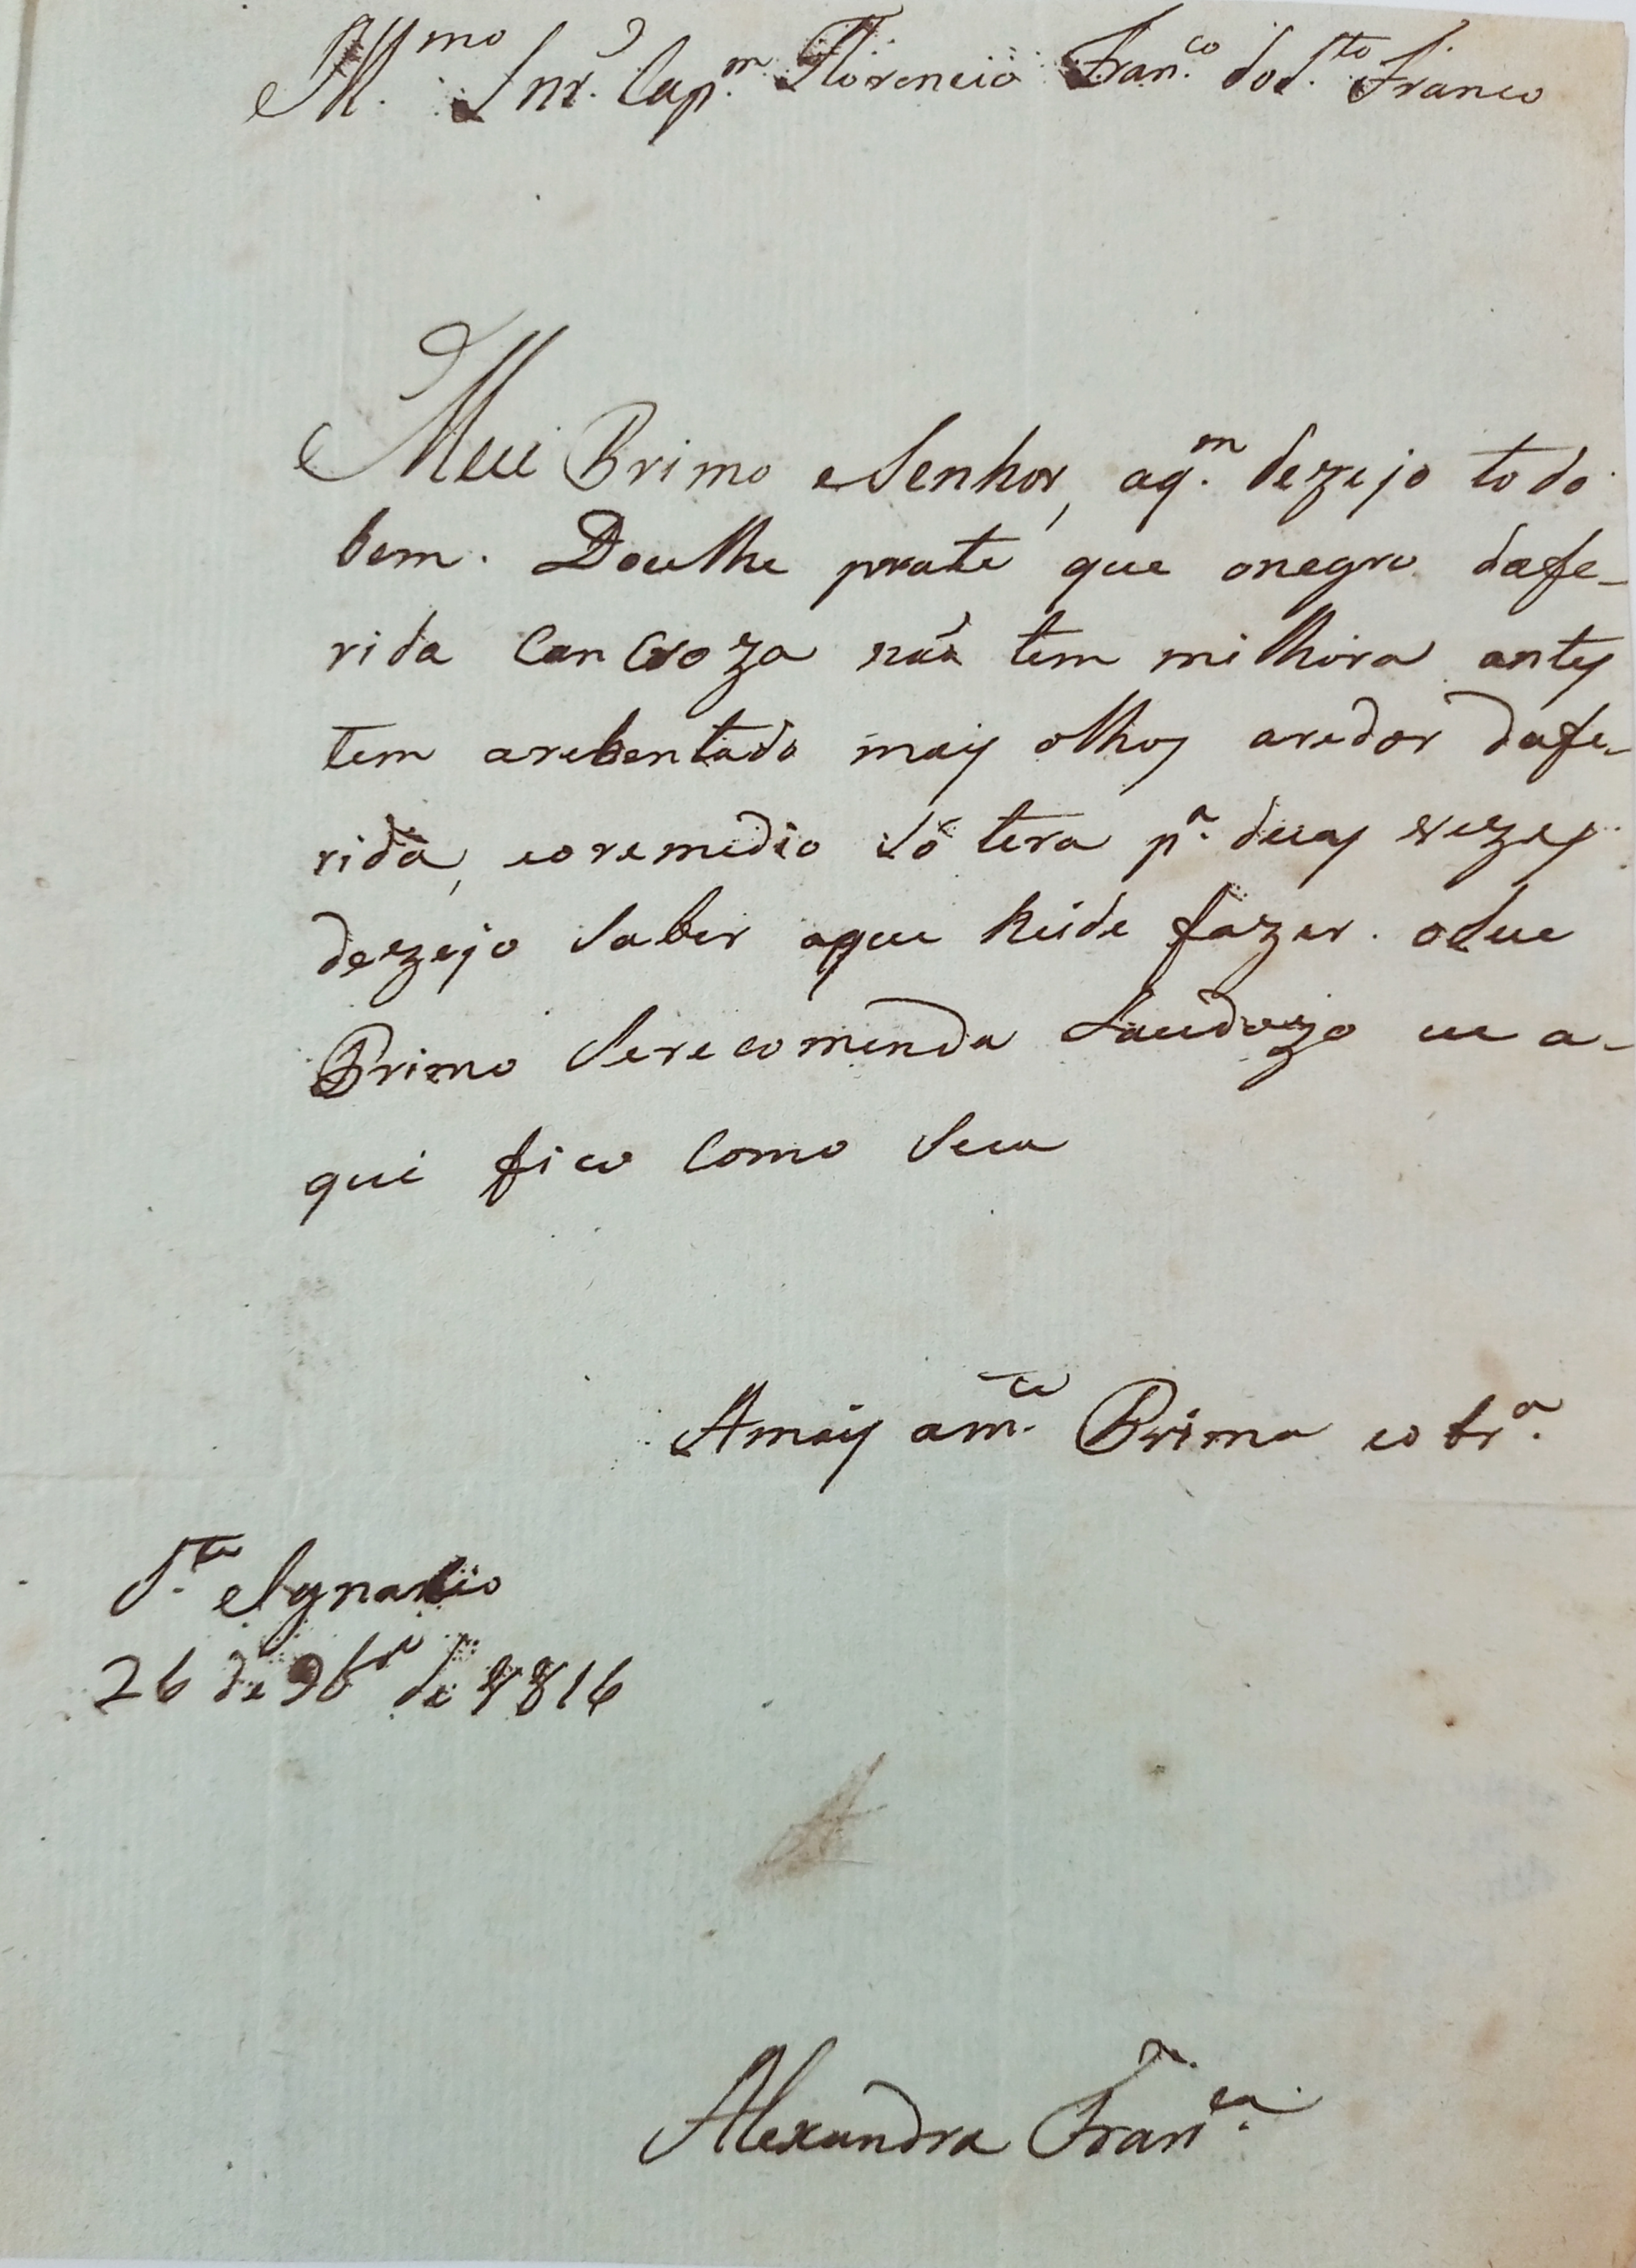 Illmo. Snr. Capm. Florencio Franco. do S.to Franco
Meu Primo eSenhor, aqm. dezejo todo
bem. Doulhe parte que onegro dafe-
rida Cancroza não tem milhora antes
tem arebentado mais olhos aredor dafe-
rida, eoremedio só tera pa. duas vezes
dezejo Saber oque heide fazer. oSeu
Primo Serecomenda Saudozo eu a-
qui fico Como Sua
Amais amte. Prima eobra.
Sto. Ignacio
26 de 9bro de 1816
Alexandra Franca.